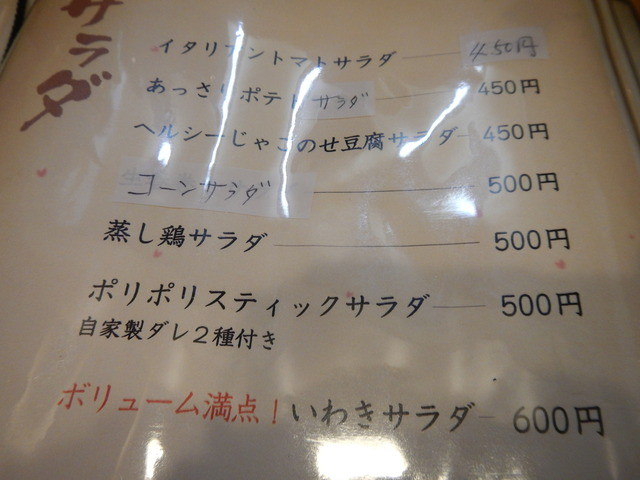 サラダ
イタリアントマトサラダ 450円
あっさりポテトサラダ 450円
ヘルシーじゃこのせ豆腐サラダ 450円
コーンサラダ 500円
蒸し鶏サラダ 500円
ポリポリスティックサラダ 500円
自家製ダレ2種付き
ボリューム満点!いわきサラダ 600円